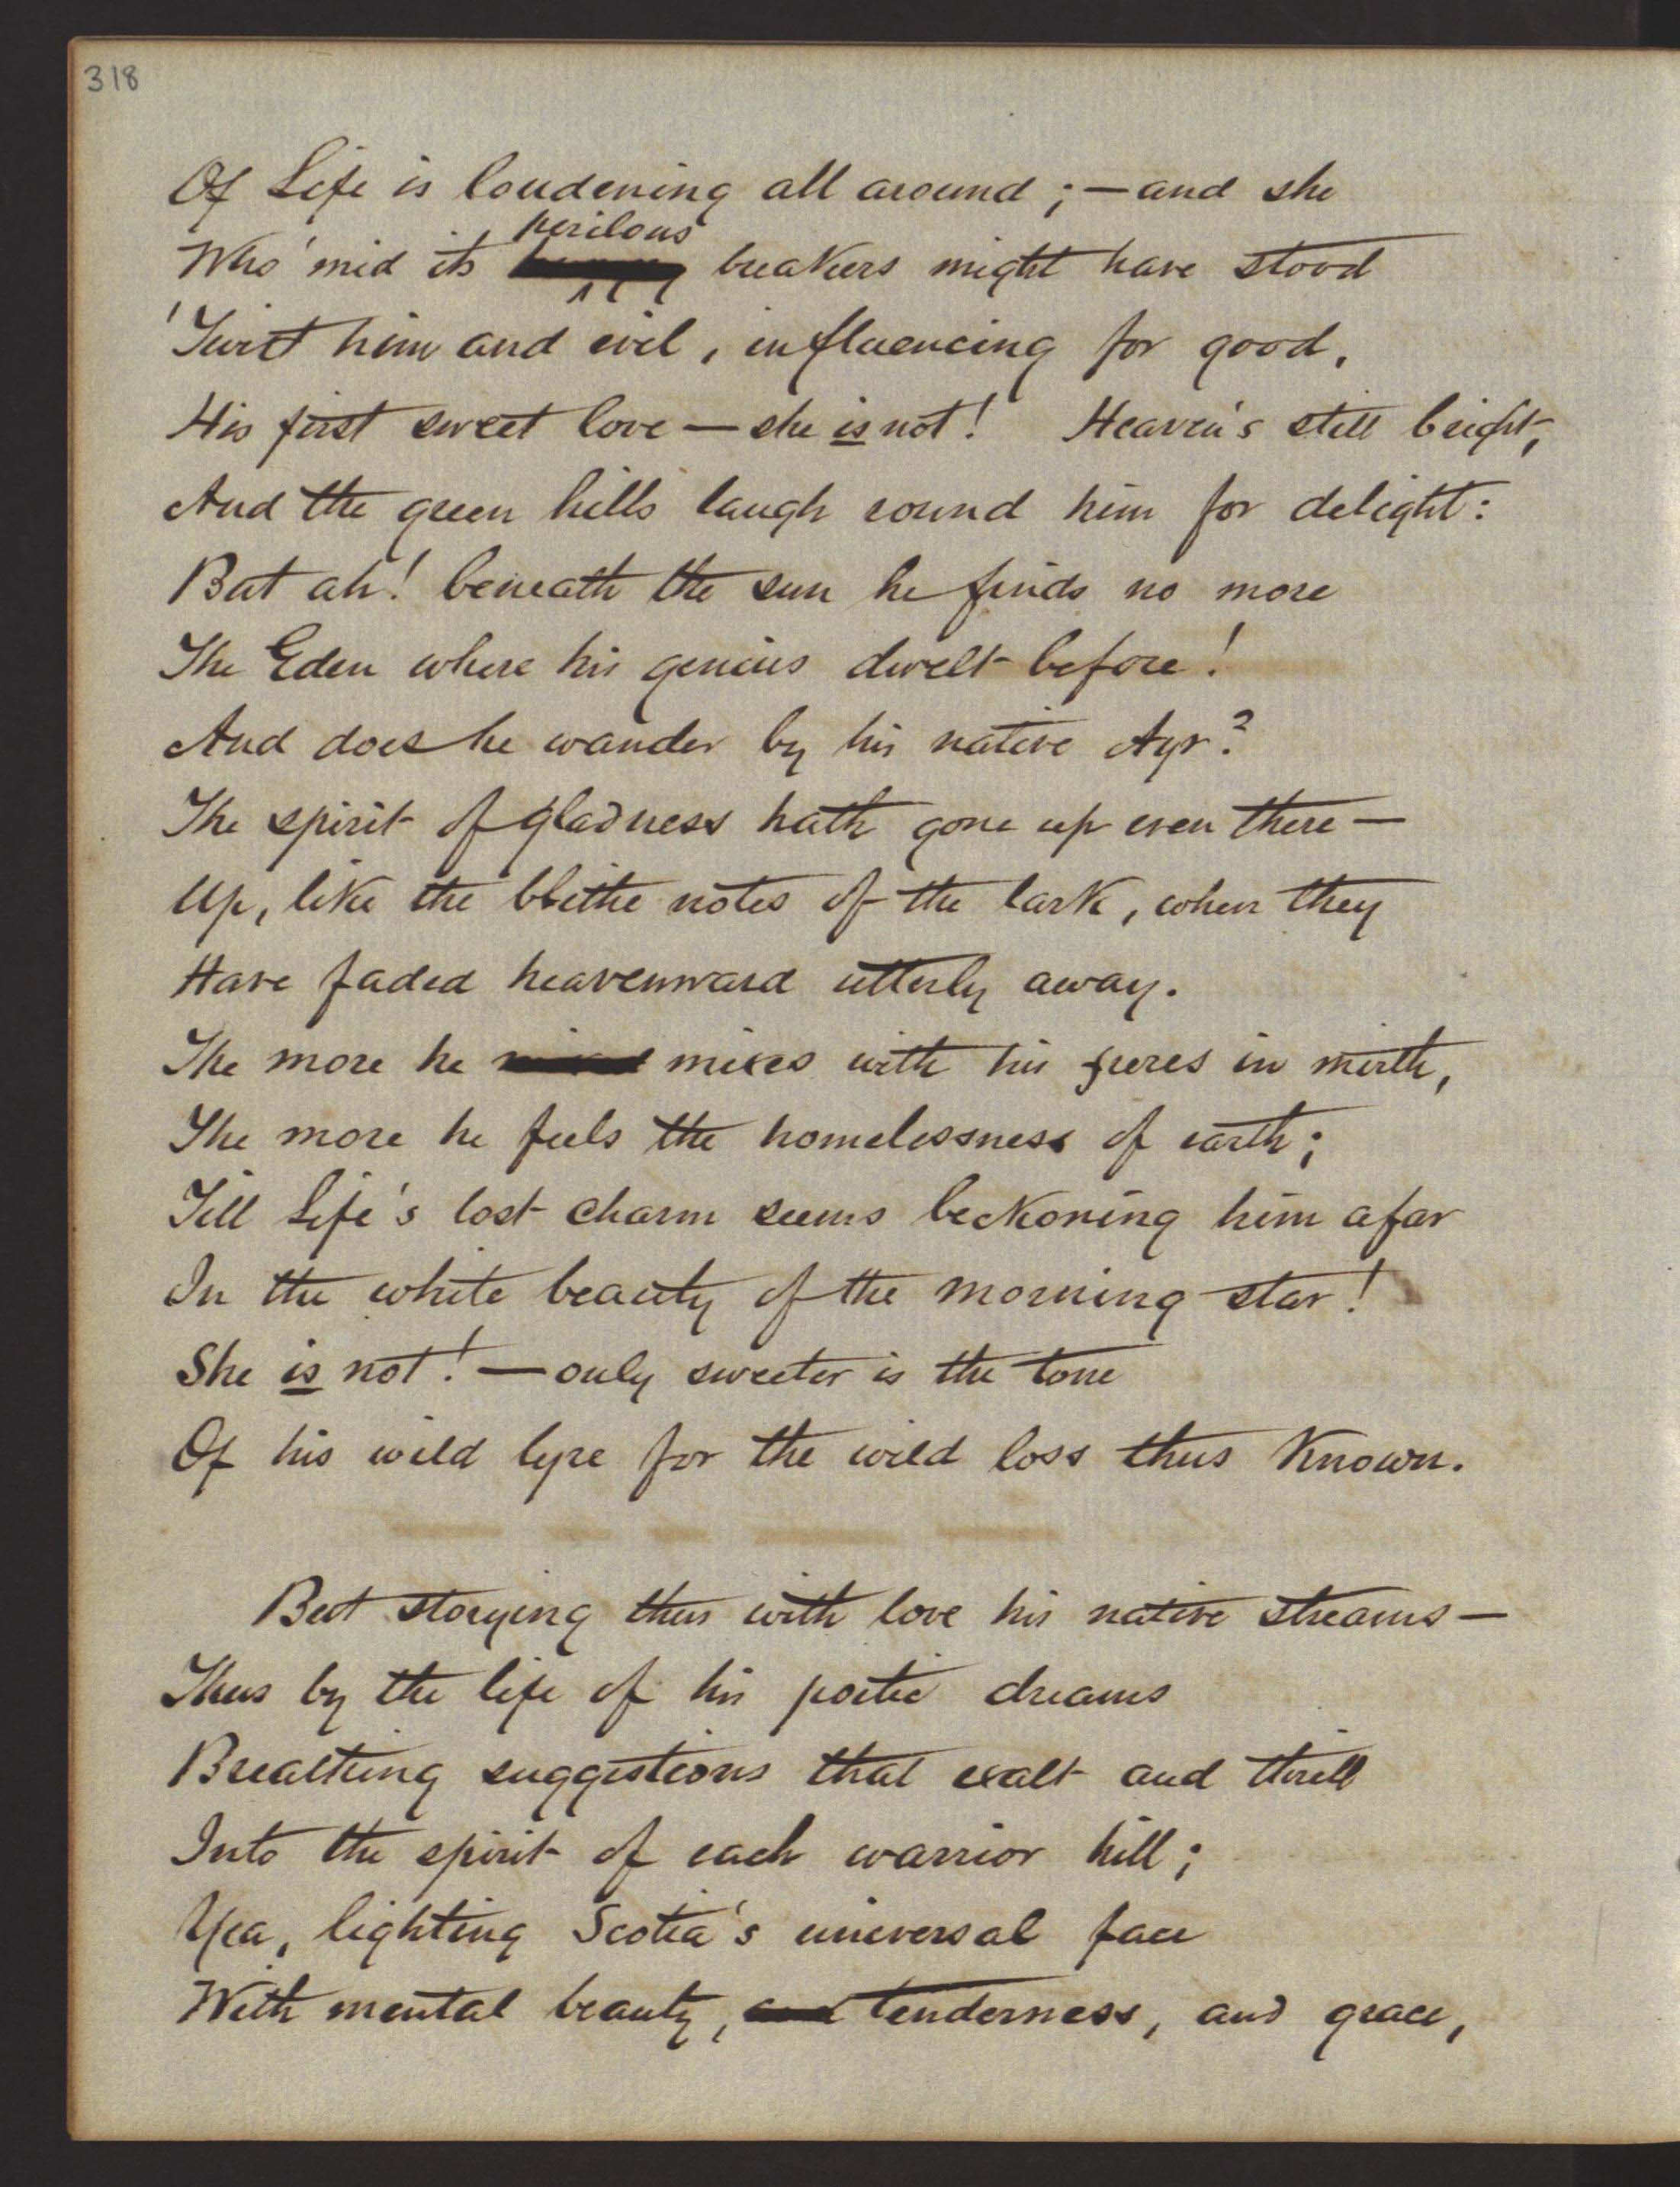 318
Of Life is loudening all around; — and she
Who 'mid its perilous breakers might have stood
'Twixt him and evil, influencing for good,
His first sweet love — she is not! Heaven's still bright,
And the green hills laugh round him for delight:
But ah! beneath the sun he finds no more
The Eden where his genius dwelt before!
And does he wander by his native Ayr?
The spirit of gladness hath gone up even there —
Up, like the blithe notes of the lark, when they
Have faded heavenward utterly away.
The more he mixes with his feres in mirth,
The more he feels the homelessness of earth;
Till Life's lost charm seems beckoning him afar
In the white beauty of the morning star!
She is not! — only sweeter is the tone
Of his wild lyre for the wild loss thus known.
But storying thus with love his native streams —
Thus by the life of his poetic dreams
Breathing suggestions that exalt and thrill
Into the spirit of each warrior hill;
Yea, lighting Scotia's universal face
With mental beauty, and tenderness, and grace,